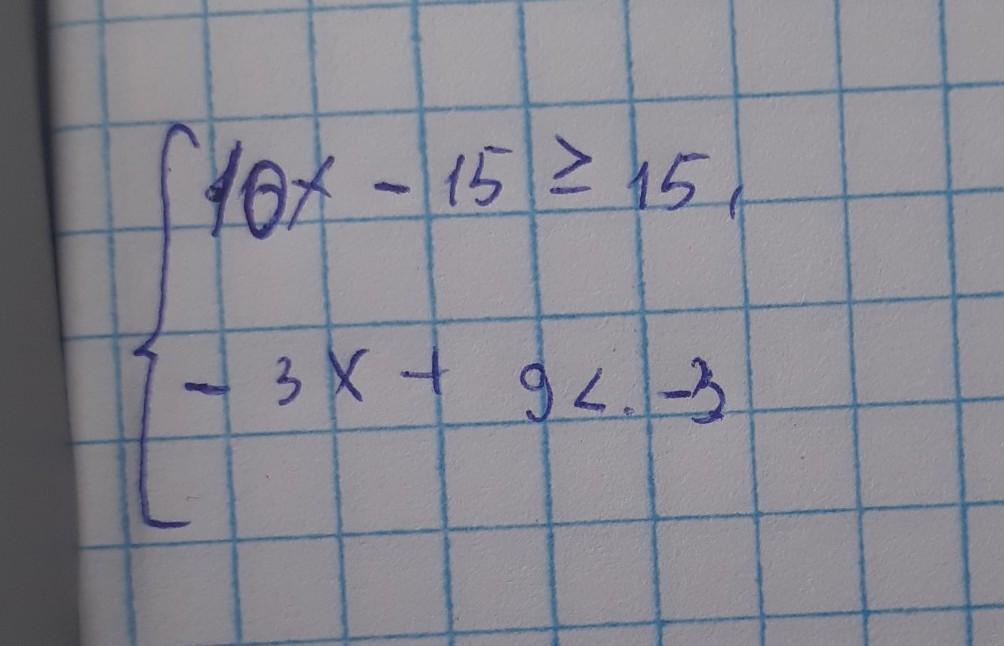 10x - 15 ≥ 15,
- 3x + 9 < -3